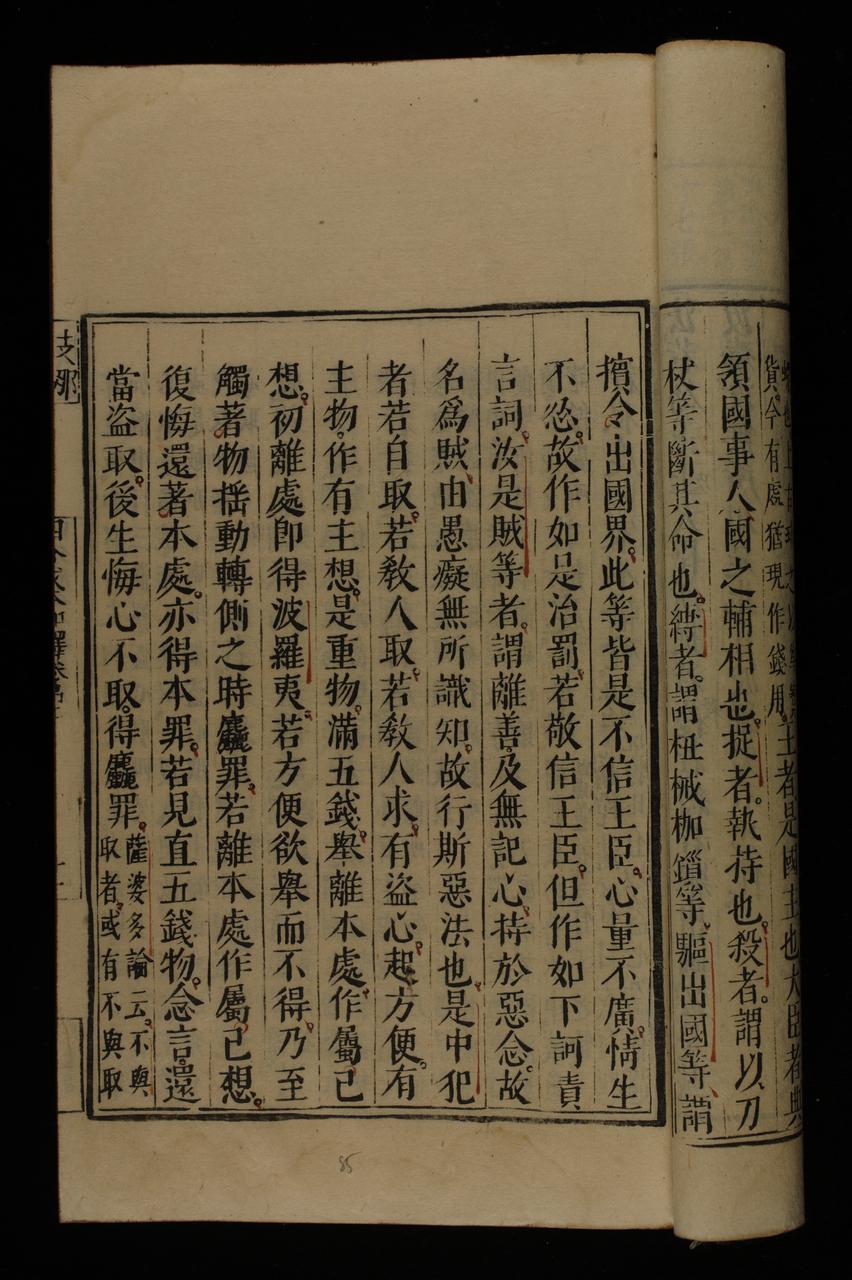 貨今有處猶現作錢用王者是國主也大臣者典
領國事人國之輔相也捉者執持也殺者謂以刀
杖等斷其命也縛者謂杻械枷鎖等驅出國等謂
擯令出國界此等皆是不信王臣心量不廣情生
不忿故作如是治罰若敬信王臣但作如下訶責
言詞汝是賊等者謂離善及無記心持於惡念故
名爲賊由愚癡無所識知故行斯惡法也是中犯
者若自取若敎人取若敎人求有盜心起方便有
主物作有主想是重物滿五錢舉離本處作屬己
想初離處卽得波羅夷若方便欲舉而不得乃至
觸著物搖動轉側之時麤罪若離本處作屬己想
復悔還著本處亦得本罪若見直五錢物念言還
當盜取後生悔心不取得麤罪薩婆多論云不與
取者或有不與取
支那
85